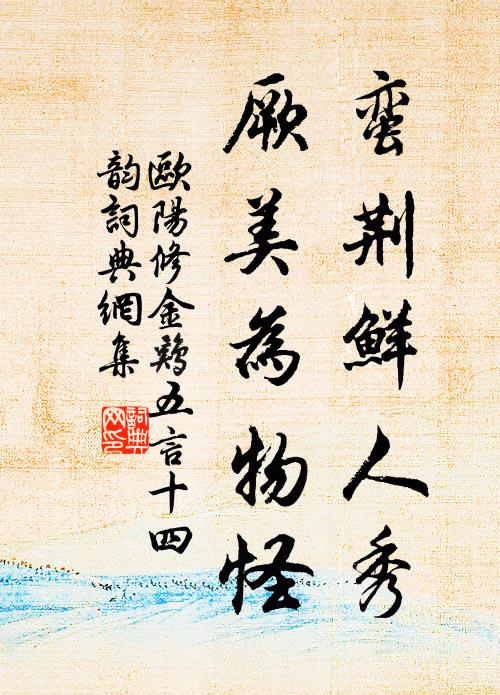 蛮荆鮮人秀
厥美為物怪
歐陽修金鷄五言十四
韵詞典網集
詞典
网印